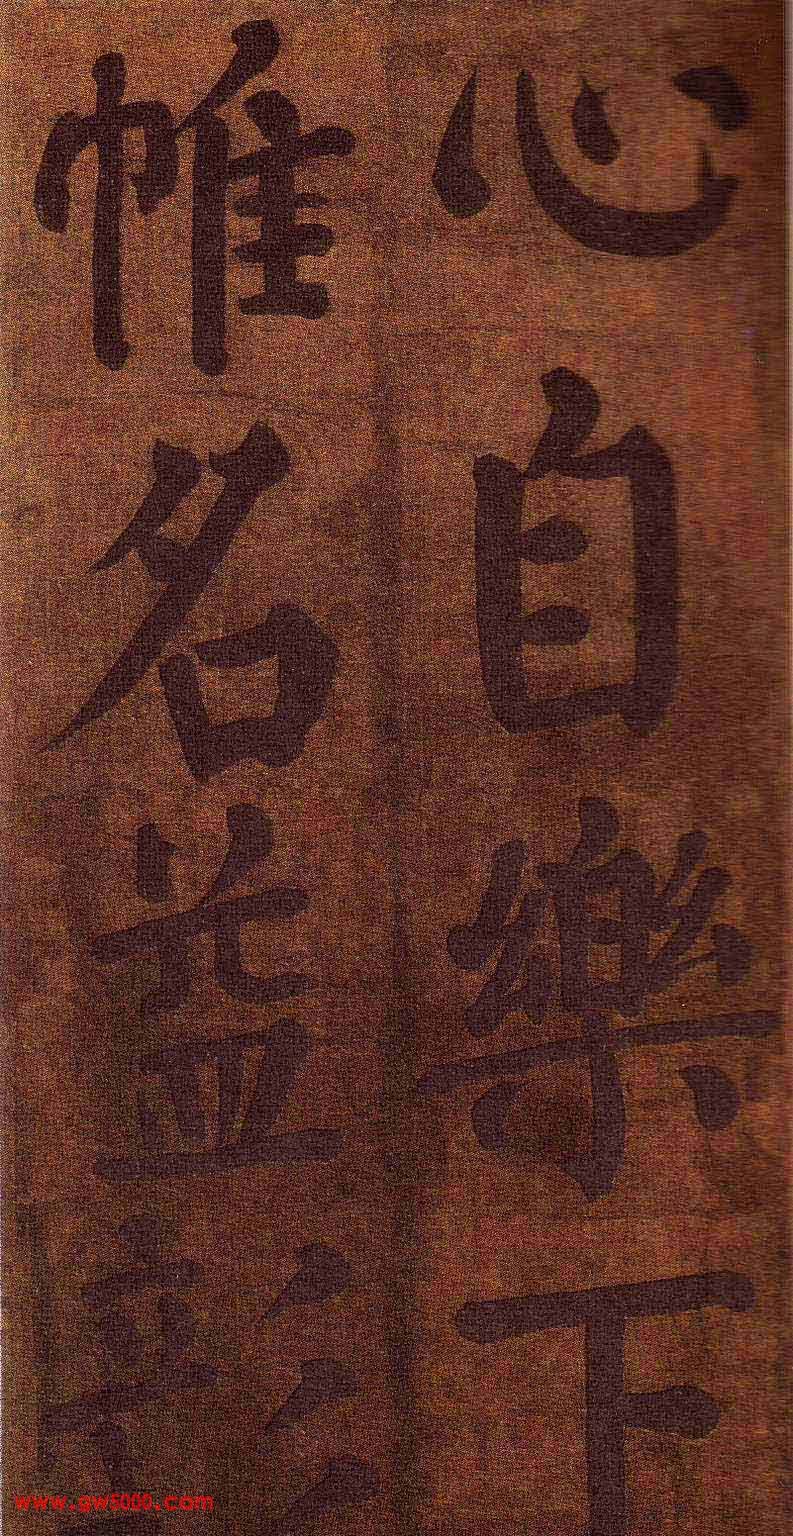 心自樂下
帷名益彰
www.gw5000.com